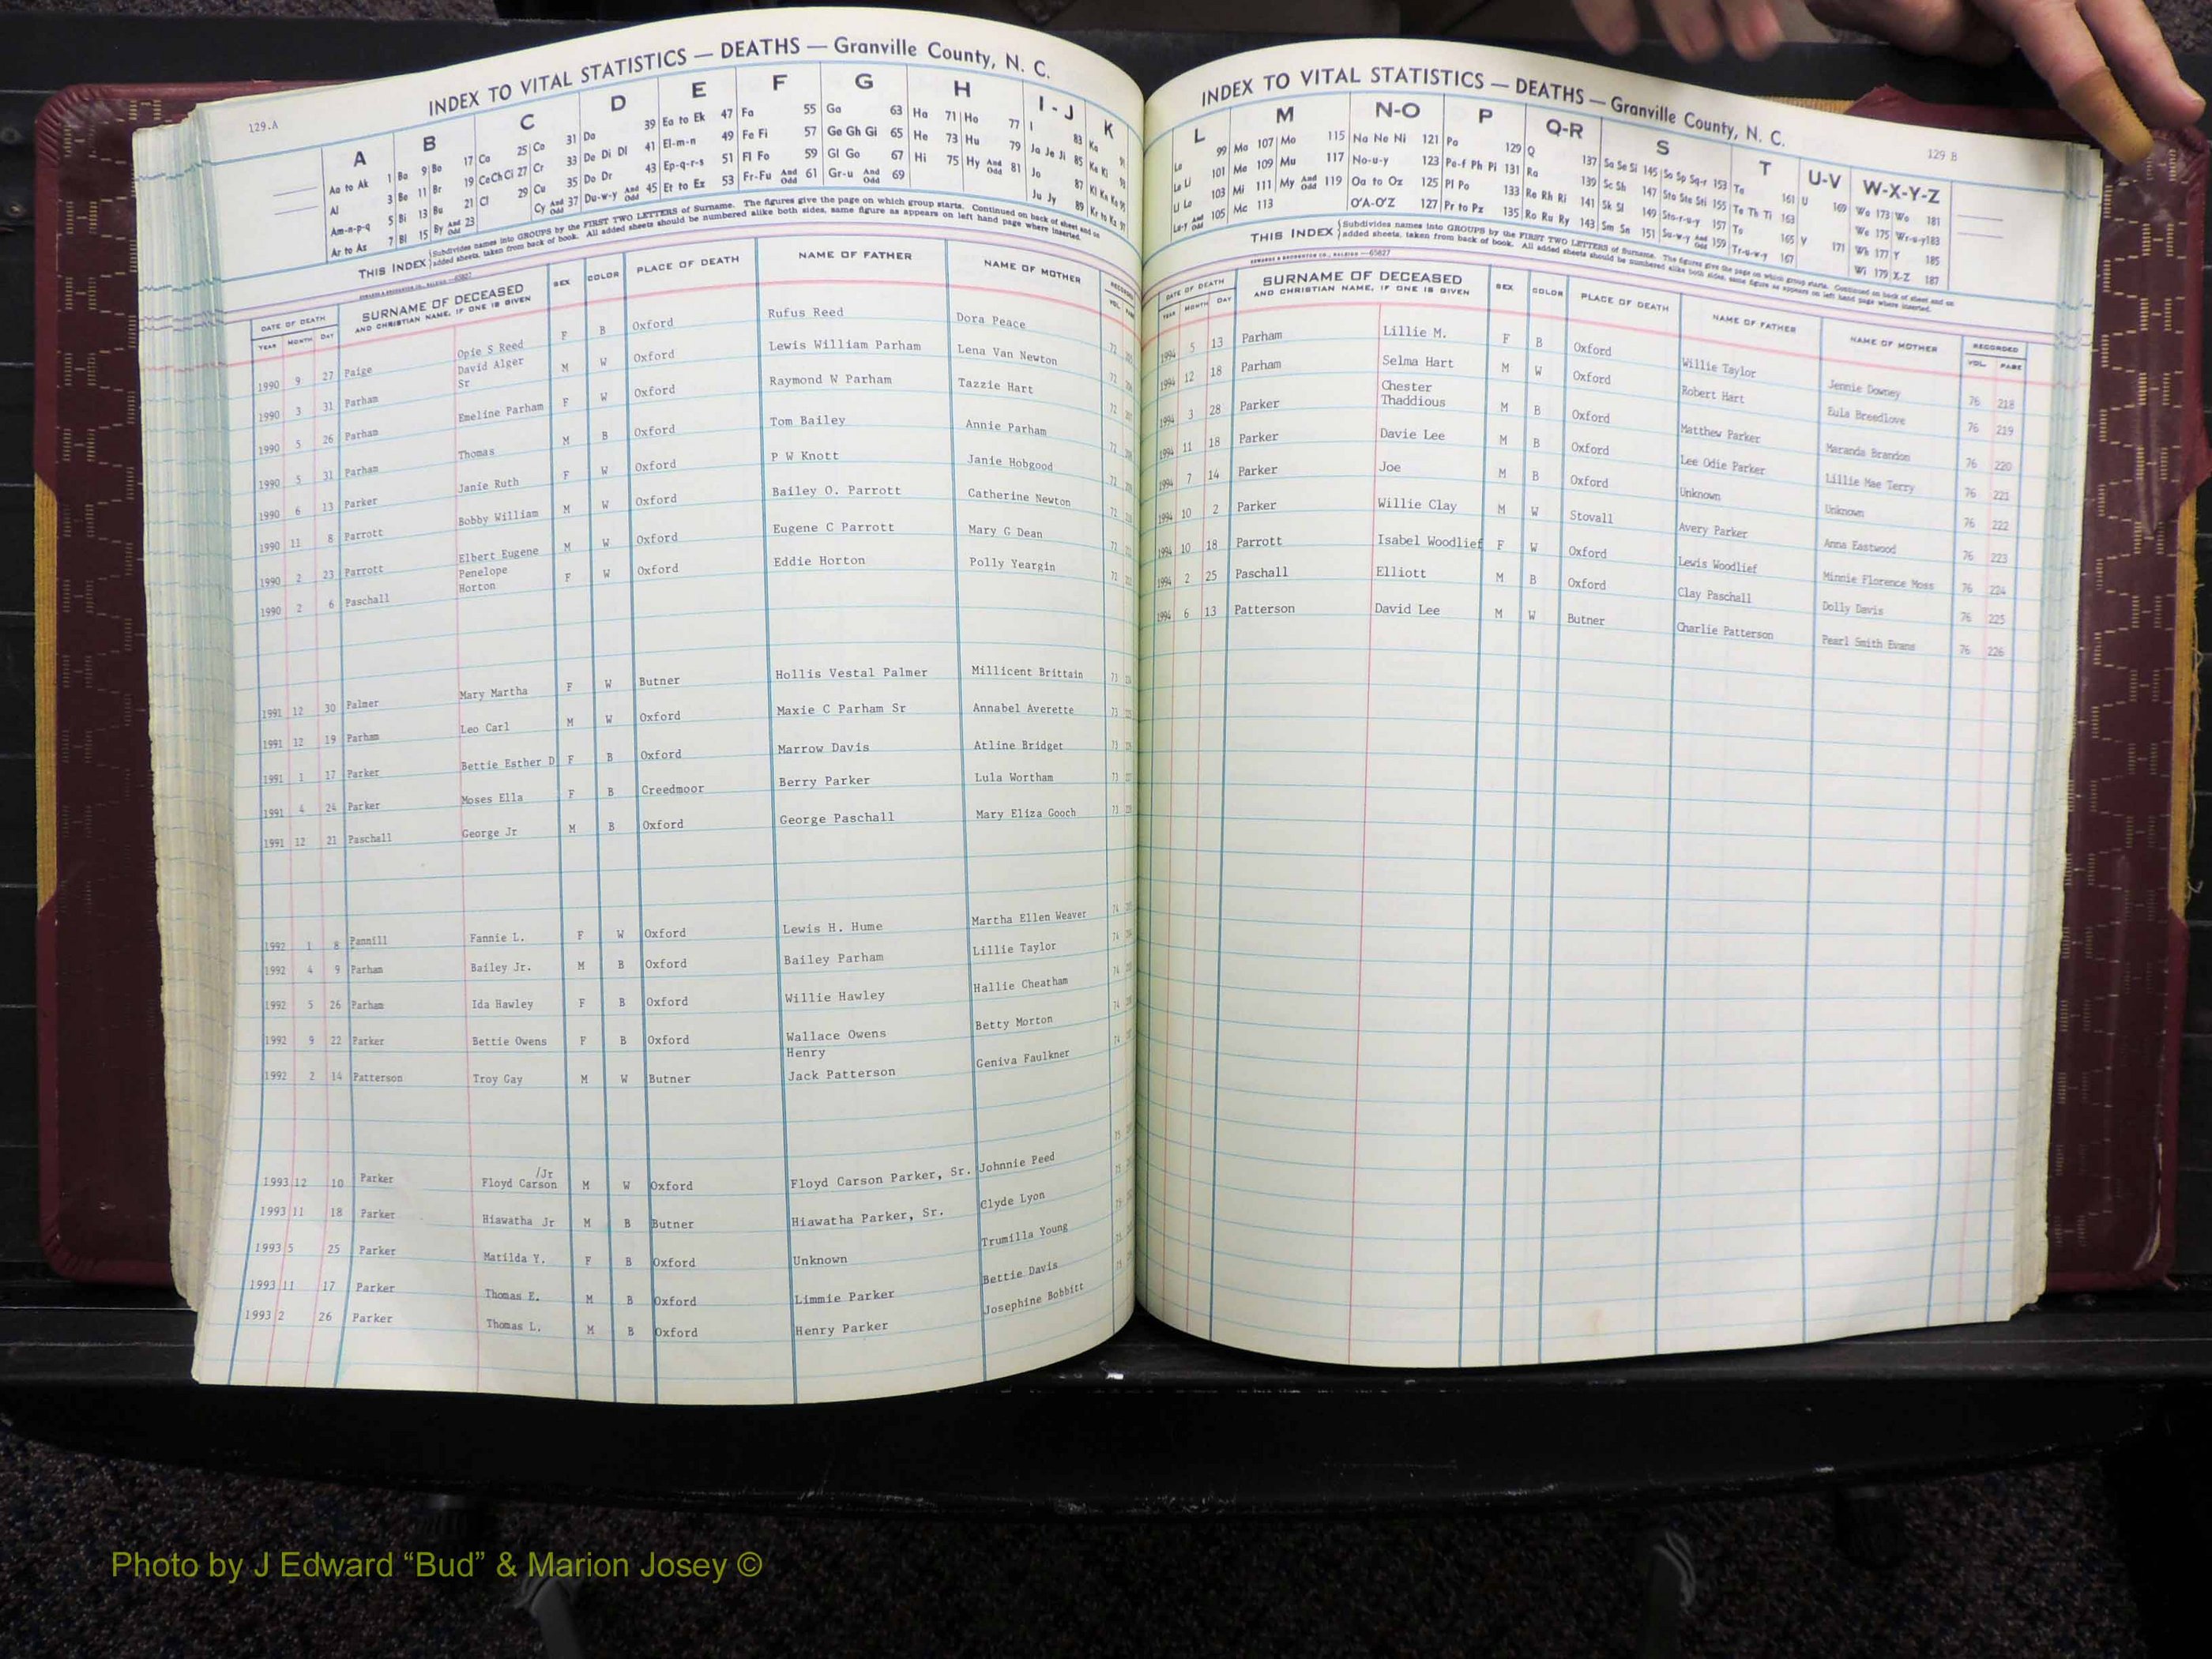 129.A
INDEX TO VITAL STATISTICS — DEATHS — Granville County, N. C.
A B C D E F G H I - J K
Aa to Ak 1 Ba 9 Bo 17 Ca 25 Co 31 Da 39 Ea to Ek 47 Fa 55 Ga 63 Ha 71 Ho 77 I 83 Ka 91
Al 3 Be 11 Br 19 Ce Ch Ci 27 Cr 33 De Di Dl 41 El-m-n 49 Fe Fi 57 Ge Gh Gi 65 He 73 Hu 79 Ja Je Ji 85 Ke Ki 93
Am-n-p-q 5 Bi 13 Bu 21 Cl 29 Cu 35 Do Dr 43 Ep-q-r-s 51 Fl Fo 59 Gl Go 67 Hi 75 Hy And Odd 81 Jo 87 Kl Kn Ko 95
Ar to Az 7 Bl 15 By And Odd 23 Cy And Odd 37 Du-w-y And Odd 45 Et to Ez 53 Fr-Fu And Odd 61 Gr-u And Odd 69 Ju Jy 89 Kr to Kz 97
THIS INDEX Subdivides names into GROUPS by the FIRST TWO LETTERS of Surname. The figures give the page on which group starts. Continued on back of sheet and on
added sheets, taken from back of book. All added sheets should be numbered alike both sides, same figure as appears on left hand page where inserted.
DATE OF DEATH SURNAME OF DECEASED SEX COLOR PLACE OF DEATH NAME OF FATHER NAME OF MOTHER
YEAR MONTH DAY AND CHRISTIAN NAME, IF ONE IS GIVEN
1990 9 27 Paige Opie S Reed F B Oxford Rufus Reed Dora Peace 72
1990 3 31 Parham David Alger Sr M W Oxford Lewis William Parham Lena Van Newton 72
1990 5 26 Parham Emeline Parham F W Oxford Raymond W Parham Tazzie Hart 72
1990 5 31 Parham Thomas M B Oxford Tom Bailey Annie Parham 72
1990 6 13 Parker Janie Ruth F W Oxford P W Knott Janie Hobgood 72
1990 11 8 Parrott Bobby William M W Oxford Bailey O. Parrott Catherine Newton 72
1990 2 23 Parrott Elbert Eugene M W Oxford Eugene C Parrott Mary G Dean 72
1990 2 6 Paschall Penelope Horton F W Oxford Eddie Horton Polly Yeargin 72
1991 12 30 Palmer Mary Martha F W Butner Hollis Vestal Palmer Millicent Brittain 73
1991 12 19 Parham Leo Carl M W Oxford Maxie C Parham Sr Annabel Averette 73
1991 1 17 Parker Bettie Esther D F B Oxford Marrow Davis Atline Bridget 73
1991 4 24 Parker Moses Ella F B Creedmoor Berry Parker Lula Wortham 73
1991 12 21 Paschall George Jr M B Oxford George Paschall Mary Eliza Gooch 73
1992 1 8 Pannill Fannie L. F W Oxford Lewis H. Hume Martha Ellen Weaver 74
1992 4 9 Parham Bailey Jr. M B Oxford Bailey Parham Lillie Taylor 74
1992 5 26 Parham Ida Hawley F B Oxford Willie Hawley Hallie Cheatham 74
1992 9 22 Parker Bettie Owens F B Oxford Wallace Owens Betty Morton 74
1992 2 14 Patterson Troy Gay M W Butner Henry Jack Patterson Geniva Faulkner 74
1993 12 10 Parker Floyd Carson /Jr M W Oxford Floyd Carson Parker, Sr. Johnnie Peed 75
1993 11 18 Parker Hiawatha Jr M B Butner Hiawatha Parker, Sr. Clyde Lyon 75
1993 5 25 Parker Matilda Y. F B Oxford Unknown Trumilla Young 75
1993 11 17 Parker Thomas E. M B Oxford Limmie Parker Bettie Davis 75
1993 2 26 Parker Thomas L. M B Oxford Henry Parker Josephine Bobbitt 75
129 B
INDEX TO VITAL STATISTICS — DEATHS — Granville County, N. C.
L M N-O P Q-R S T U-V W-X-Y-Z
La 99 Ma 107 Mo 115 Na Ne Ni 121 Pa 129 Q 137 Sa Se Si 145 So Sp Sq-r 153 Ta 161 U 169 Wa 173 Wo 181
Le Li 101 Me 109 Mu 117 No-u-y 123 Pe-f Ph Pi 131 Ra 139 Sc Sh 147 Sta Ste Sti 155 Te Th Ti 163 We 175 Wr-u-y 183
Ll Lo 103 Mi 111 My And Odd 119 Oa to Oz 125 Pl Po 133 Re Rh Ri 141 Sk Sl 149 Sto-r-u-y 157 To 165 V 171 Wh 177 Y 185
Lu-y And Odd 105 Mc 113 O'A-O'Z 127 Pr to Pz 135 Ro Ru Ry 143 Sm Sn 151 Su-w-y And Odd 159 Tr-u-w-y 167 Wi 179 X-Z 187
THIS INDEX Subdivides names into GROUPS by the FIRST TWO LETTERS of Surname. The figures give the page on which group starts. Continued on back of sheet and on
added sheets, taken from back of book. All added sheets should be numbered alike both sides, same figure as appears on left hand page where inserted.
DATE OF DEATH SURNAME OF DECEASED SEX COLOR PLACE OF DEATH NAME OF FATHER NAME OF MOTHER RECORDED
YEAR MONTH DAY AND CHRISTIAN NAME, IF ONE IS GIVEN VOL. PAGE
1994 5 13 Parham Lillie M. F B Oxford Willie Taylor Jennie Downey 76 218
1994 12 18 Parham Selma Hart M W Oxford Robert Hart Eula Breedlove 76 219
1994 3 28 Parker Chester Thaddious M B Oxford Matthew Parker Maranda Brandon 76 220
1994 11 18 Parker Davie Lee M B Oxford Lee Odie Parker Lillie Mae Terry 76 221
1994 7 14 Parker Joe M B Oxford Unknown Unknown 76 222
1994 10 2 Parker Willie Clay M W Stovall Avery Parker Anna Eastwood 76 223
1994 10 18 Parrott Isabel Woodlief F W Oxford Lewis Woodlief Minnie Florence Moss 76 224
1994 2 25 Paschall Elliott M B Oxford Clay Paschall Dolly Davis 76 225
1994 6 13 Patterson David Lee M W Butner Charlie Patterson Pearl Smith Evans 76 226
Photo by J Edward “Bud” & Marion Josey ©